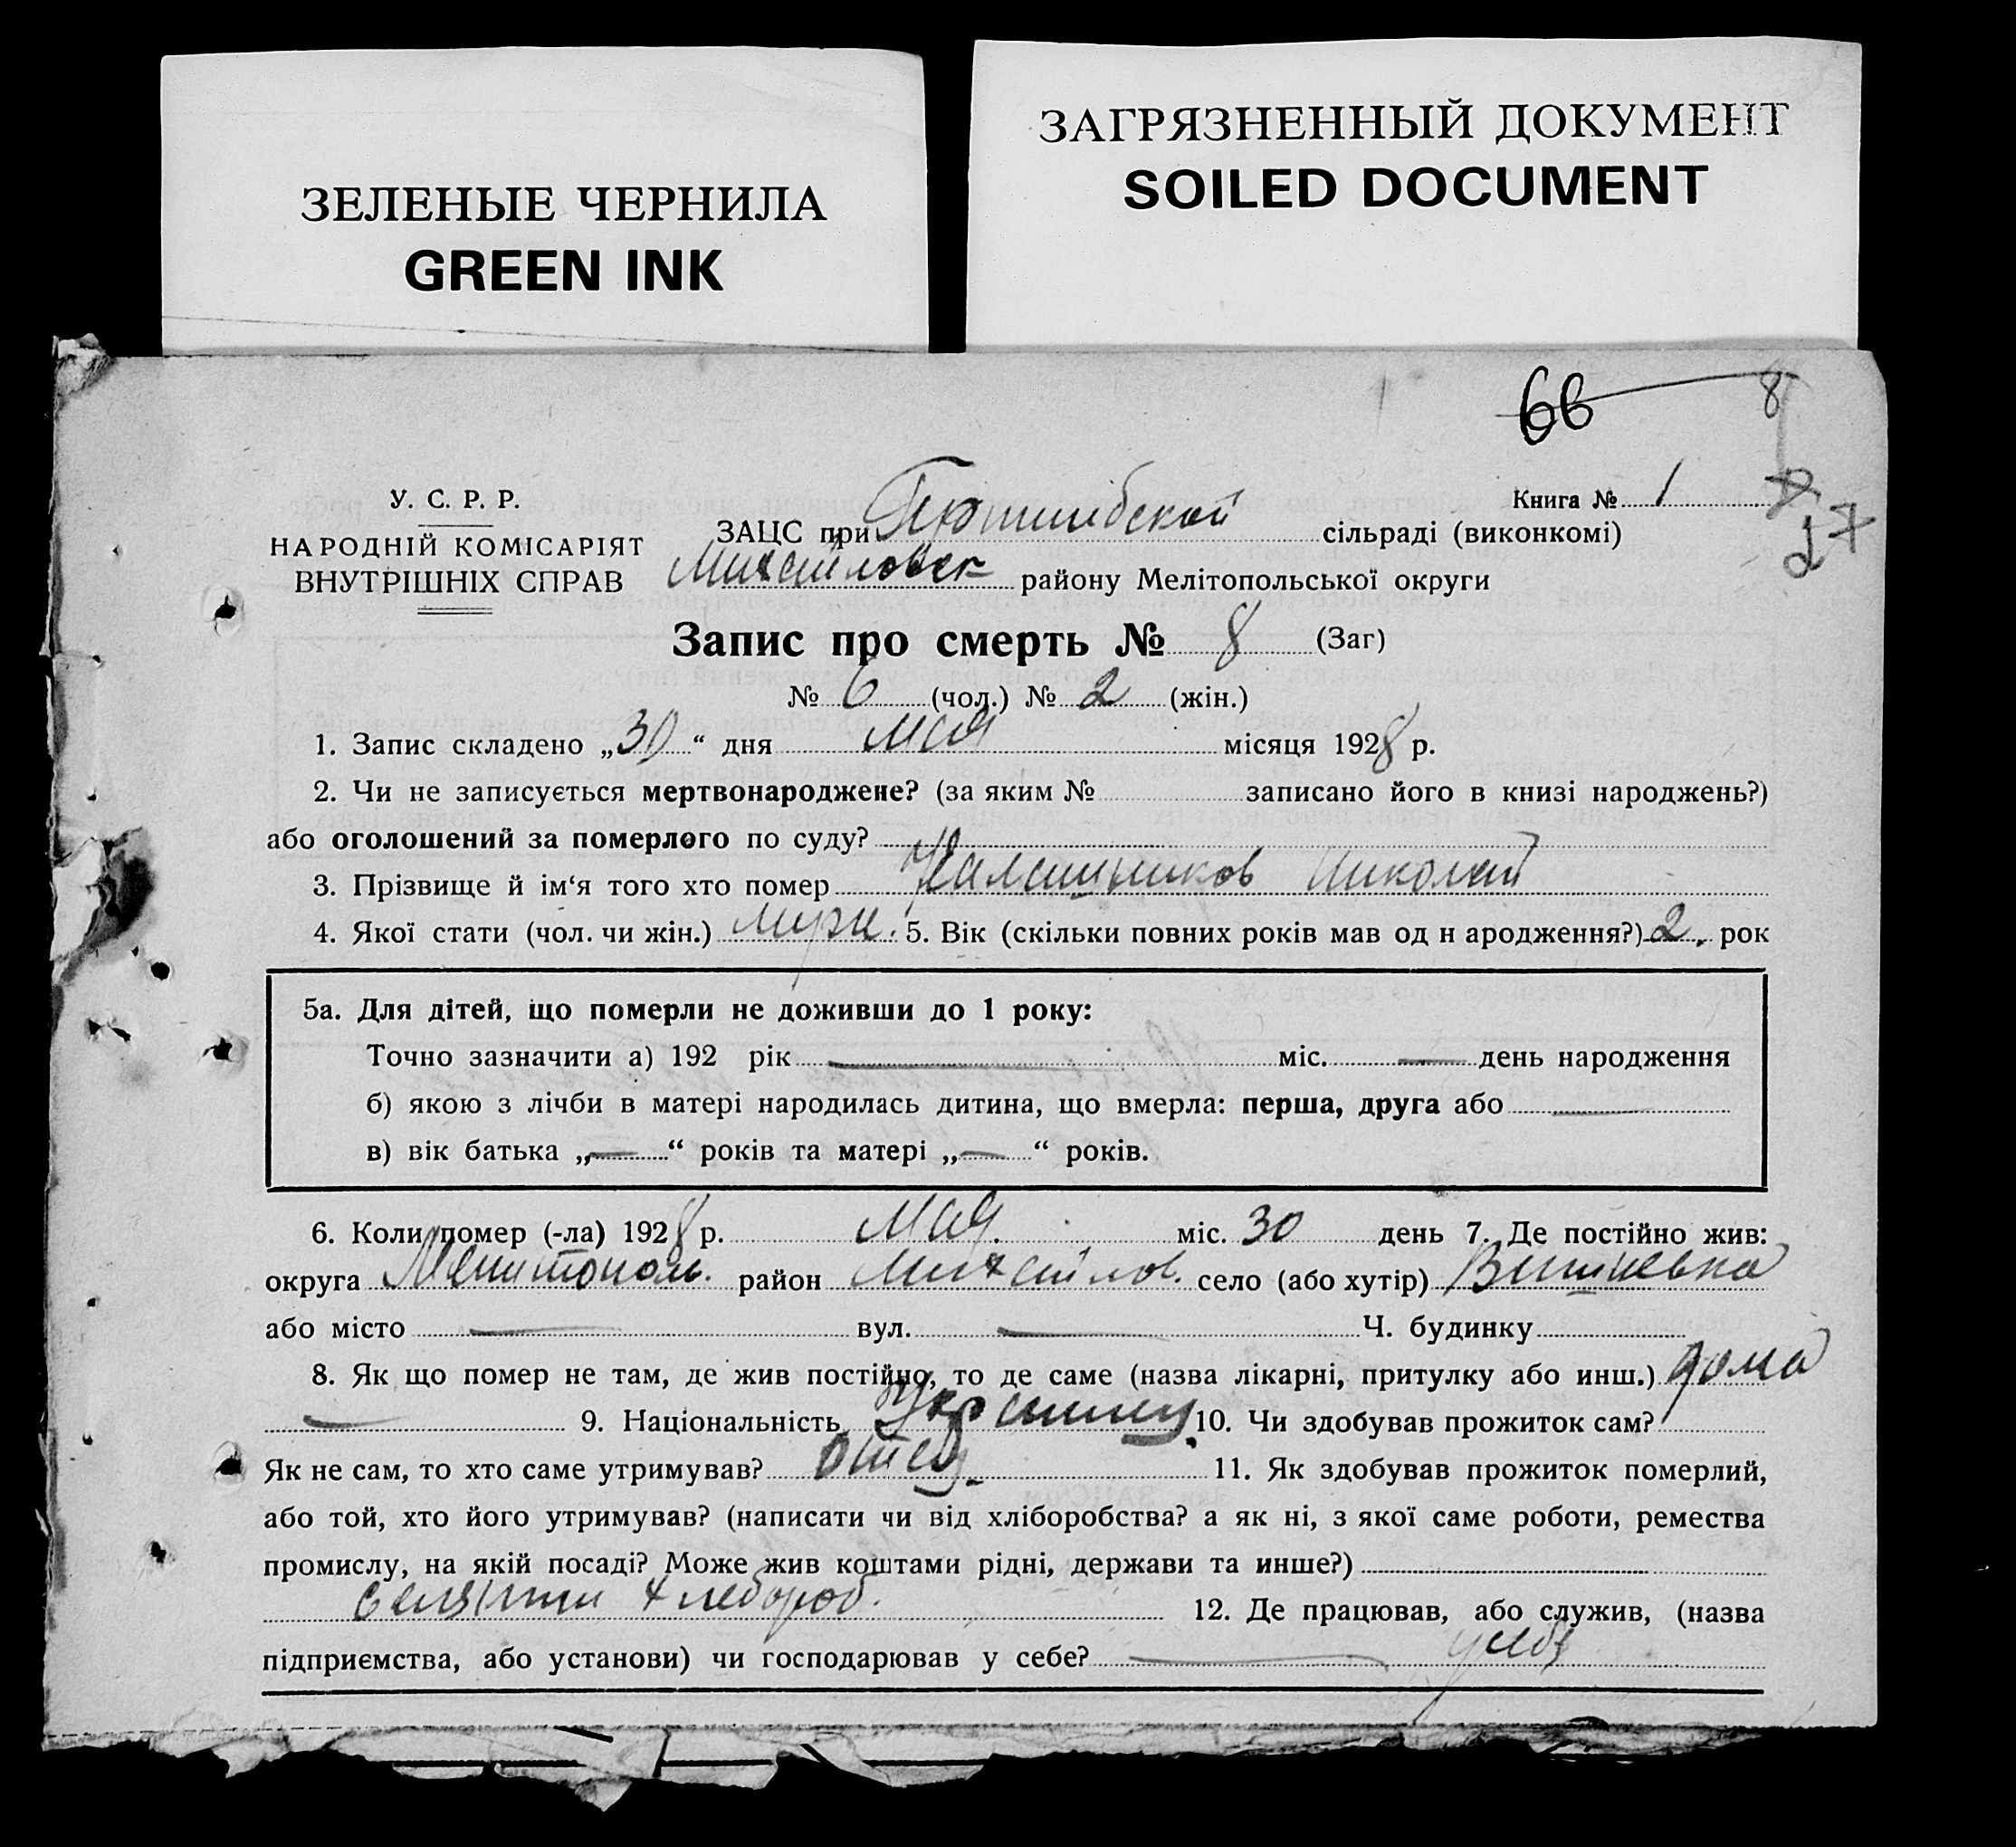 ЗЕЛЕНЫЕ ЧЕРНИЛА
GREEN INK
ЗАГРЯЗНЕННЫЙ ДОКУМЕНТ
SOILED DOCUMENT
66 8
У. С. Р. Р.
НАРОДНІЙ КОМІСАРІЯТ
ВНУТРІШНІХ СПРАВ
Книга № 1
27
ЗАЦС при сільраді (виконкомі)
Михайловск району Мелітопольської округи
Запис про смерть № 8 (Заг)
№ 6 (чол.) № 2 (жін.)
1. Запис складено „30“ дня мая місяця 1928 р.
2. Чи не записується мертвонароджене? (за яким № записано його в книзі народжень?)
або оголошений за померлого по суду?
3. Прізвище й ім‘я того хто помер Калашников Николай
4. Якої стати (чол. чи жін.) муж. 5. Вік (скільки повних років мав од н ародження?) 2. рок
5а. Для дітей, що померли не доживши до 1 року:
Точно зазначити а) 192 рік — міс. — день народження
б) якою з лічби в матері народилась дитина, що вмерла: перша, друга або —
в) вік батька „—“ років та матері „—“ років.
6. Коли помер (-ла) 1928 р. мая. міс. 30 день 7. Де постійно жив:
округа Мелитополь. район Михайлов. село (або хутір) Вишневка
або місто — вул. — Ч. будинку
8. Як що помер не там, де жив постійно, то де саме (назва лікарні, притулку або инш.) дома
— 9. Національність 10. Чи здобував прожиток сам?
Як не сам, то хто саме утримував? отец 11. Як здобував прожиток померлий,
або той, хто його утримував? (написати чи від хліборобства? а як ні, з якої саме роботи, ремества
промислу, на якій посаді? Може жив коштами рідні, держави та инше?)
хлебороб. 12. Де працював, або служив, (назва
підприємства, або установи) чи господарював у себе? — у себя